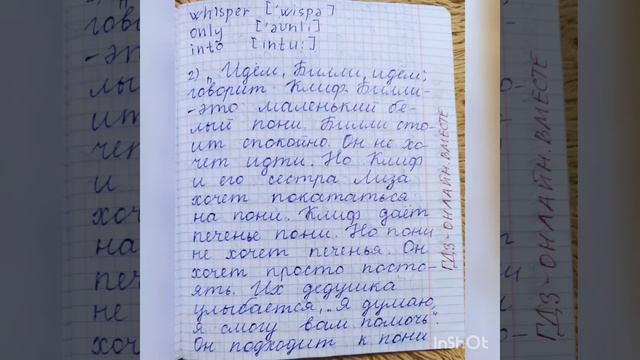 whisper ['wispə]
only ['əunli]
into [intu:]
2) „Идём, Билли, идём",
говорит Клиф. Билли-
-это маленький бе-
лый пони. Билли сто-
ит спокойно. Он не хо-
чет идти. Но Клиф
и его сестра Лиза
хочет покататься
на пони. Клиф даёт
печенье пони. Но пони
не хочет печенья. Он
хочет просто посто-
ять. Их дедушка
улыбается, „Я думаю,
я смогу вам помочь".
Он подходит к пони
ГДЗ-ОНЛАЙН.ВМЕСТЕ
InShOt